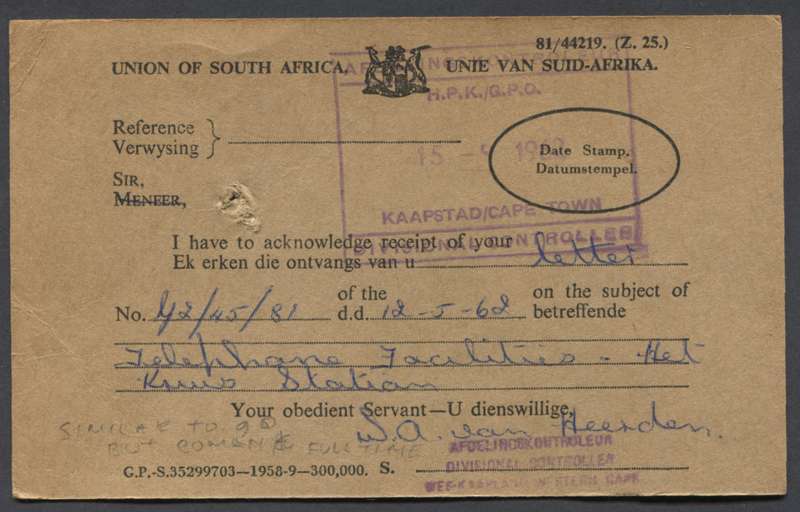 81/44219. (Z. 25.)
UNION OF SOUTH AFRICA. UNIE VAN SUID-AFRIKA.
H.P.K./G.P.O.
Reference
Verwysing
15
Date Stamp.
Datumstempel.
SIR,
MENEER,
KAAPSTAD/CAPE TOWN
DIVISIONAL CONTROLLER
I have to acknowledge receipt of your
Ek erken die ontvangs van u letter
No. 42/45/81 of the d.d. 12-5-62 on the subject of betreffende
Telephone Facilities - Het
Kruis Station
Your obedient Servant—U dienswillige,
W.A. van Heerden.
SIMILAR TO 98
BUT FULL TIME
AFDELINGSKONTROLEUR
DIVISIONAL CONTROLLER
WES-KAAPLAND/WESTERN CAPE
G.P.-S.35299703—1958-9—300,000. S.